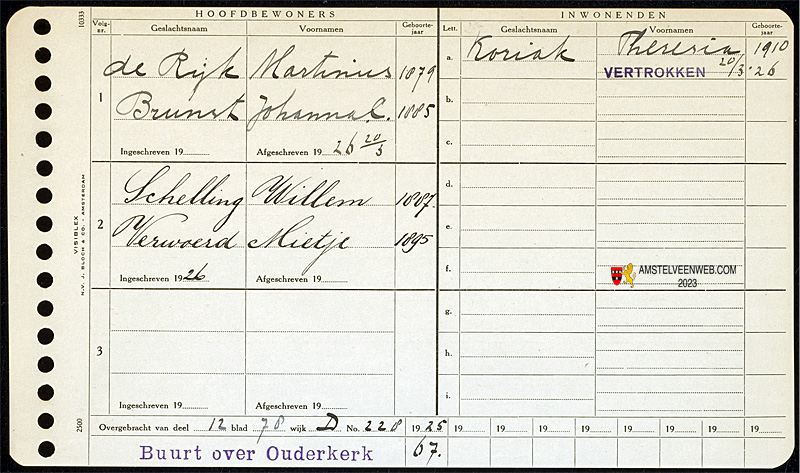 HOOFDBEWONERS
Volg-nr. Geslachtsnaam Voornamen Geboorte-jaar
1
de Rijk Martinus 1879
Brunst Johanna C. 1885
Ingeschreven 19 Afgeschreven 19 26 20/3
2
Schelling Willem 1887.
Verwoerd Mietje 1895
Ingeschreven 19 26 Afgeschreven 19
3
Ingeschreven 19 Afgeschreven 19
INWONENDEN
Lett. Geslachtsnaam Voornamen Geboorte-jaar
a. Koriak Theresia 1910
VERTROKKEN 20/3-26
b.
c.
d.
e.
f.
AMSTELVEENWEB.COM
2023
g.
h.
i.
Overgebracht van deel 12 blad 78 wijk D No. 228 1925 19 19 19 19 19 19 19
Buurt over Ouderkerk 67.
10333
VISIBLEX
N.V. J. BLOCH & CO. - AMSTERDAM
2500